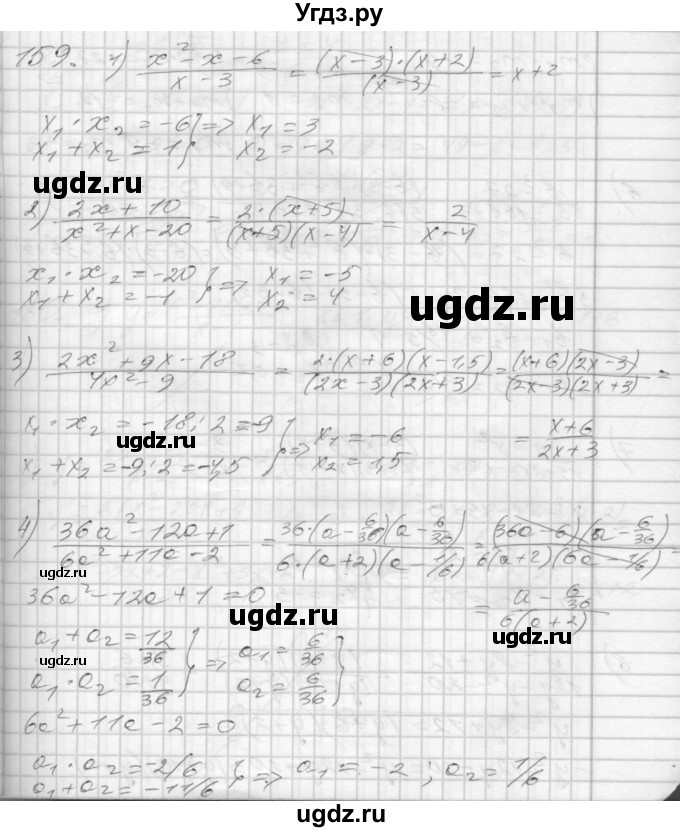 Угдз.ру
159. 1) (x² - x - 6)/(x - 3) = ((x - 3)·(x + 2))/(x - 3) = x + 2
x₁ · x₂ = -6 } => x₁ = 3
x₁ + x₂ = 1 } x₂ = -2
ugdz.ru
2) (2x + 10)/(x² + x - 20) = (2·(x + 5))/((x + 5)(x - 4)) = 2/(x - 4)
ugdz.ru
x₁ · x₂ = -20 } => x₁ = -5
x₁ + x₂ = -1 } x₂ = 4
ugdz.ru
3) (2x² + 9x - 18)/(4x² - 9) = (2·(x + 6)(x - 1,5))/((2x - 3)(2x + 3)) = ((x + 6)(2x - 3))/((2x - 3)(2x + 3)) =
x₁ · x₂ = -18:2 = -9 } => x₁ = -6
= (x + 6)/(2x + 3)
ugdz.ru
x₁ + x₂ = -9:2 = -4,5 } x₂ = 1,5
4) (36a² - 12a + 1)/(6a² + 11a - 2) = (36·(a - 6/36)(a - 6/36))/(6·(a + 2)(a - 1/6)) = ((36a - 6)(a - 6/36))/(6(a + 2)(6a - 1/6)) =
ugdz.ru
ugdz.ru
36a² - 12a + 1 = 0
= (a - 6/36)/(6(a + 2))
ugdz.ru
ugdz.ru
a₁ + a₂ = 12/36 } => a₁ = 6/36 }
ugdz.ru
a₁ · a₂ = 1/36 } a₂ = 6/36 }
6a² + 11a - 2 = 0
a₁ · a₂ = -2/6 } => a₁ = -2 ; a₂ = 1/6
a₁ + a₂ = -11/6
ugdz.ru
ugdz.ru
Угдз.ру